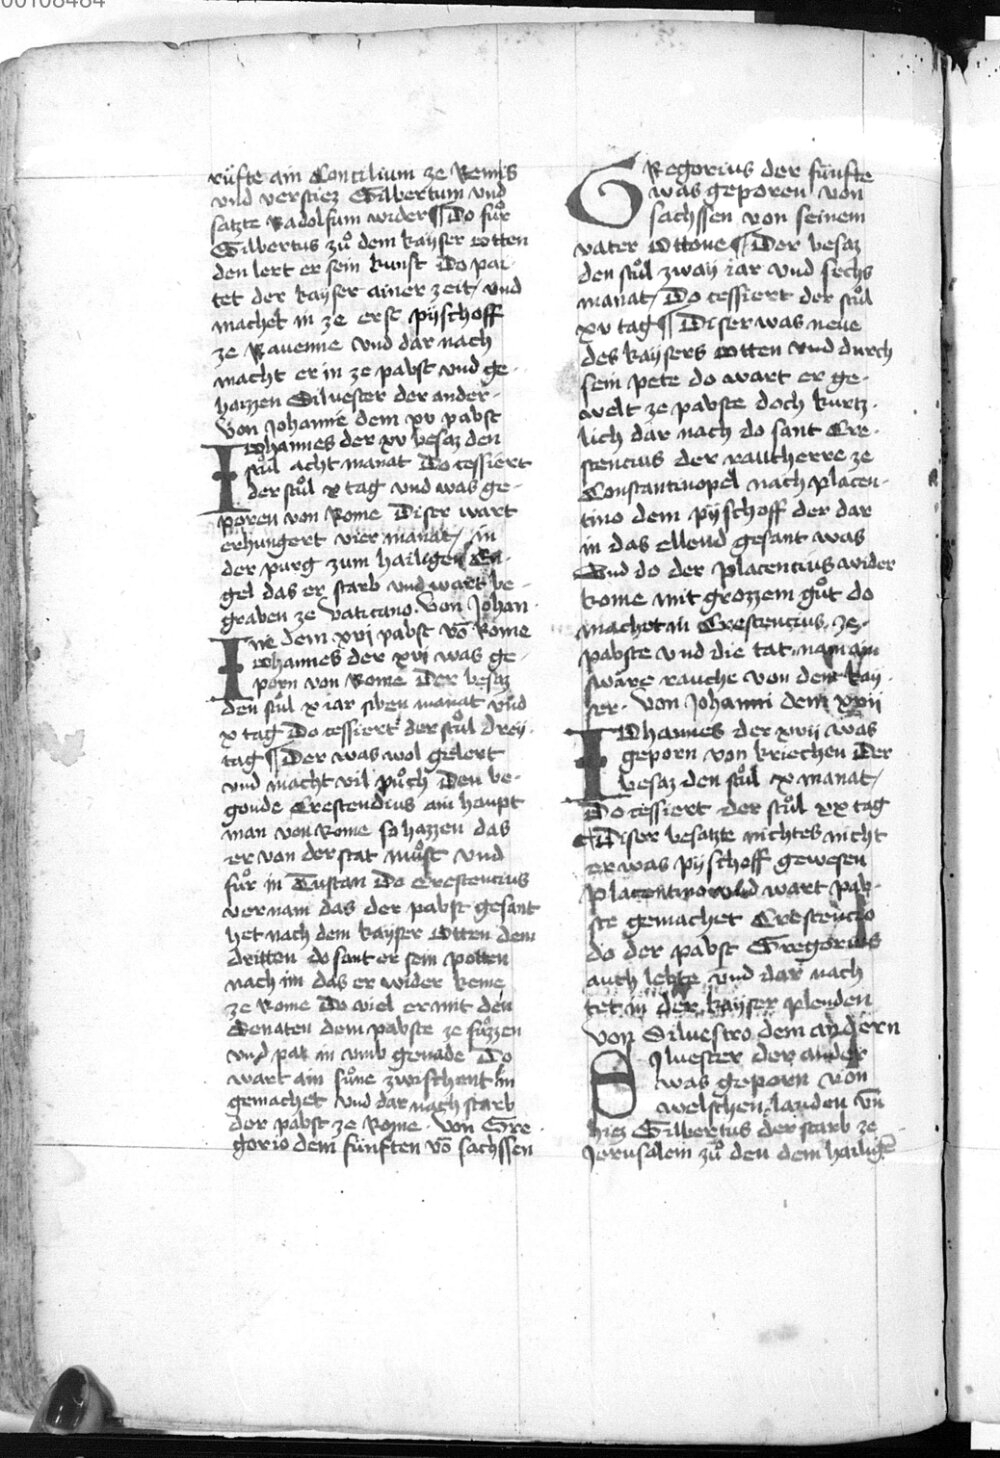 00108484
rüfte ain Concilium ze Remis
vnd verstiez Gilbertum vnd
satzte Radolfum wider ¶ Do fuͦr
Gilbertus zuͦ dem kayser otten
den lert er sein kunst Do pai-
tet der kayser ainer zeit / vnd
machet in ze erst pyschoff
ze Rauenne vnd dar nach
macht er in ze pabst vnd ge-
haizzen Siluester der ander-
Von Johanne dem xv pabst
Iohannes der xv besaz den
stuͦl acht manat Do cessiert
der stuͦl x tag vnd was ge-
poren von Rome Diser wart
erhungert vier manat / in
der purg zum hailigen En-
gel das er starb vnd wart be-
graben ze Vaticano. Von Johan-
ne dem xvi pabst vō Rome
Iohannes der xvi was ge-
porn von Rome Der besaz
den stuͦl x iar sben manat vnd
x tag Do cessiert der stuͦl drey-
tag ¶ Der was wol gelert
vnd macht vil puͦch Den be-
gonde Crestendius ain haupt
man von Rome so hazzen das
er von der stat muͦst vnd
fuͦr in Tustan Do Crestentius
vernam das der pabst gesant
het nach dem kayser Otten dem
dritten do sant er sein potten
nach im das er wider keme
ze Rome Do viel er mit den
Senaten dem pabste ze fuͦzzen
vnd pat in vmb genade Do
wart ain suͦne zwischent in
gemachet vnd dar nach starb
der pabst ze Rome. Von Gre-
gorio dem fünften vō sachssen
GRegorius der fünfte
was geporen von
sachssen von seinem
vater Ottone ¶ Der besaz
den stuͦl zway iar vnd sechs
manat / Do cessiert der stuͦl
xv tag ¶ Diser was neue
des kaysers otten vnd durch
sein pete do wart er ge-
welt ze pabste doch kurtz-
lich dar nach do sant Cre-
stencius der ratherre ze
Constantinopel nach placen-
tino dem pyschoff der dar
in das ellend gesant was
Vnd do der placentius wider
kome mit grozzem guͦt do
machet in Crestencius ze-
pabste vnd die tat nam ain
swäre rauche von dem kay-
ser. Von Johanni dem xvii
IOhannes der xvii was
geporn von kriechen Der
besaz den stuͦl x manat /
Do cessiert der stuͦl xx tag
¶ Diser besatzte nichtes nicht
er was pyschoff gewesen
placentino vnd wart pab-
ste gemachet Crestencio
do der pabst Gregorius
auch lebte vnd dar nach
tet in der kayser plenden
Von Siluestro dem andern
SIluester der ander
was geporn von
welschen landen vn̄
hiez Gilbertus der starb ze
Jerusalem zuͦ den dem hailigē